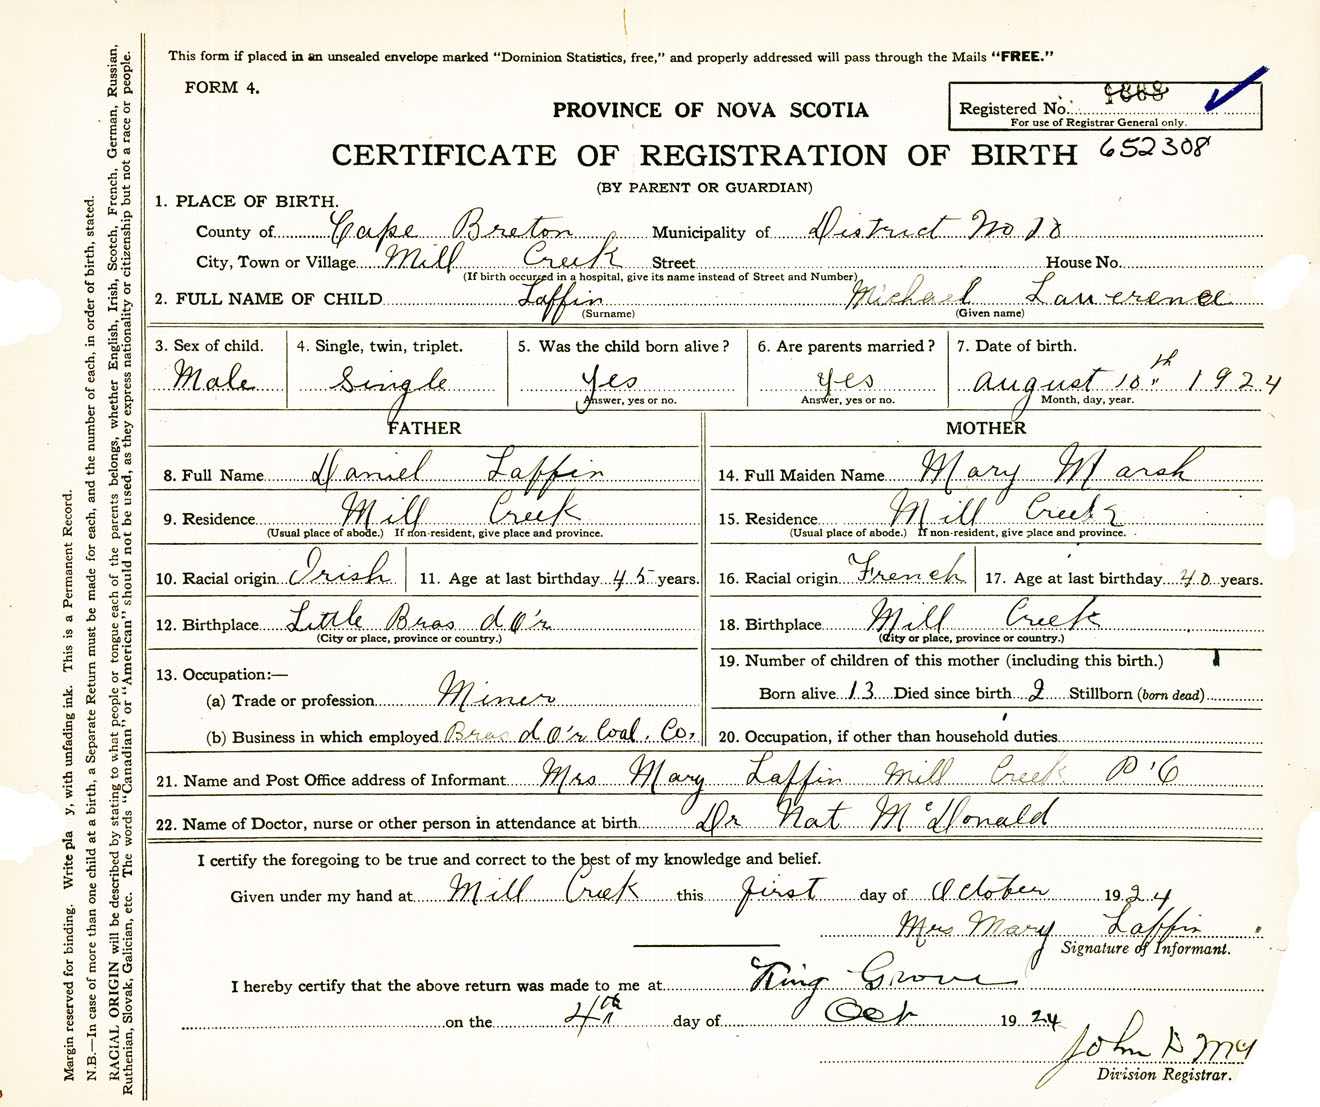 This form if placed in an unsealed envelope marked “Dominion Statistics, free,” and properly addressed will pass through the Mails “FREE.”
FORM 4.
PROVINCE OF NOVA SCOTIA
Registered No. 1888
For use of Registrar General only.
CERTIFICATE OF REGISTRATION OF BIRTH 652308
(BY PARENT OR GUARDIAN)
1. PLACE OF BIRTH.
County of Cape Breton Municipality of District No 18
City, Town or Village Mill Creek Street House No.
(If birth occurred in a hospital, give its name instead of Street and Number)
2. FULL NAME OF CHILD Laffin Michael Lawerence
(Surname) (Given name)
3. Sex of child. 4. Single, twin, triplet. 5. Was the child born alive? 6. Are parents married? 7. Date of birth.
Male Single yes yes August 10th 1924
Answer, yes or no. Answer, yes or no. Month, day, year.
FATHER MOTHER
8. Full Name Daniel Laffin 14. Full Maiden Name Mary Marsh
9. Residence Mill Creek 15. Residence Mill Creek
(Usual place of abode.) If non-resident, give place and province. (Usual place of abode.) If non-resident, give place and province.
10. Racial origin Irish 11. Age at last birthday 45 years. 16. Racial origin French 17. Age at last birthday 40 years.
12. Birthplace Little Bras d O'r 18. Birthplace Mill Creek
(City or place, province or country.) (City or place, province or country.)
13. Occupation:— 19. Number of children of this mother (including this birth.)
(a) Trade or profession Miner Born alive 13 Died since birth 2 Stillborn (born dead)
(b) Business in which employed Bras d O'r Coal. Co. 20. Occupation, if other than household duties
21. Name and Post Office address of Informant Mrs Mary Laffin Mill Creek
22. Name of Doctor, nurse or other person in attendance at birth Dr Nat McDonald
I certify the foregoing to be true and correct to the best of my knowledge and belief.
Given under my hand at Mill Creek this first day of October 1924
Mrs Mary Laffin
Signature of Informant.
I hereby certify that the above return was made to me at King Grove
on the 4th day of Oct 1924
John D Mc
Division Registrar.
Margin reserved for binding. Write pla y, with unfading ink. This is a Permanent Record.
N.B.—In case of more than one child at a birth, a Separate Return must be made for each, and the number of each, in order of birth, stated.
RACIAL ORIGIN will be described by stating to what people or tongue each of the parents belongs, whether English, Irish, Scotch, French, German, Russian,
Ruthenian, Slovak, Galician, etc. The words “Canadian” or “American” should not be used, as they express nationality or citizenship but not a race or people.